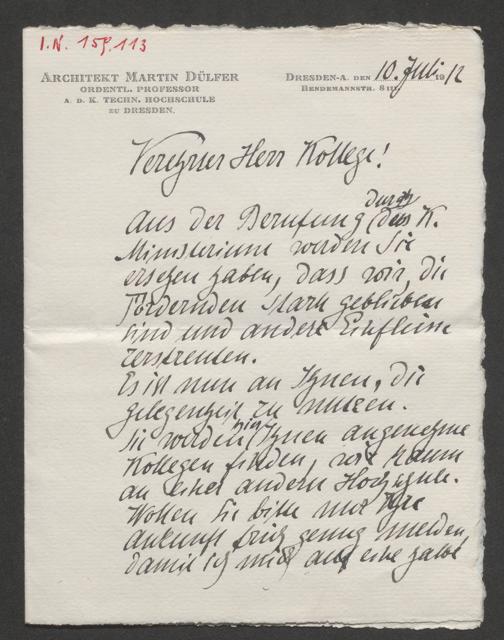 I.N. 159.113
ARCHITEKT MARTIN DÜLFER
ORDENTL. PROFESSOR
A. D. K. TECHN. HOCHSCHULE
ZU DRESDEN.
DRESDEN-A. DEN 10. Juli 1912
BENDEMANNSTR. 8 III.
Verehrter Herr Kollege!
Aus der Berufung durch das K.
Ministerium werden Sie
ersehen haben, dass wir, die
Fördernden stark geblieben
sind und andere Einflüsse
zerstreuten.
Es ist nun an Ihnen, die
Gelegenheit zu nutzen.
Sie werden hier Ihnen angenehme
Kollegen finden, wie kaum
an einer andern Hochschule.
Wollen Sie bitte mir Ihre
Ankunft früh genug melden,
damit ich mich auf eine halbe